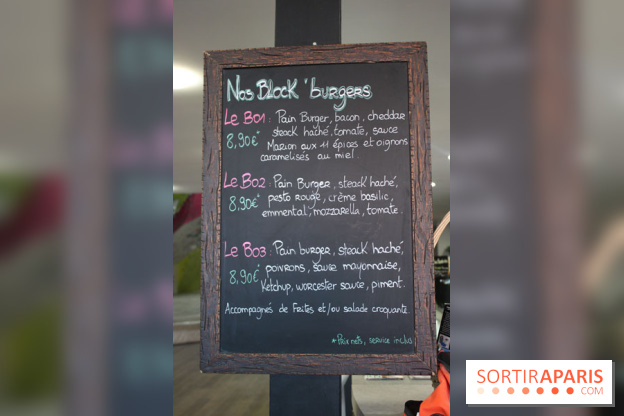 Nos Block'burgers
Le B01 : Pain Burger, bacon, cheddar
8,90€* steack haché, tomate, sauce
Marion aux 11 épices et oignons
caramelisés au miel.
Le B02 : Pain Burger, steack haché,
8,90€* pesto rouge, crème basilic,
emmental, mozzarella, tomate.
Le B03 : Pain burger, steack haché,
8,90€* poivrons, sauce mayonnaise,
Ketchup, worcester sauce, piment.
Accompagnés de Frites et/ou salade croquante.
*Prix nets, service inclus
SORTIRAPARIS
.COM